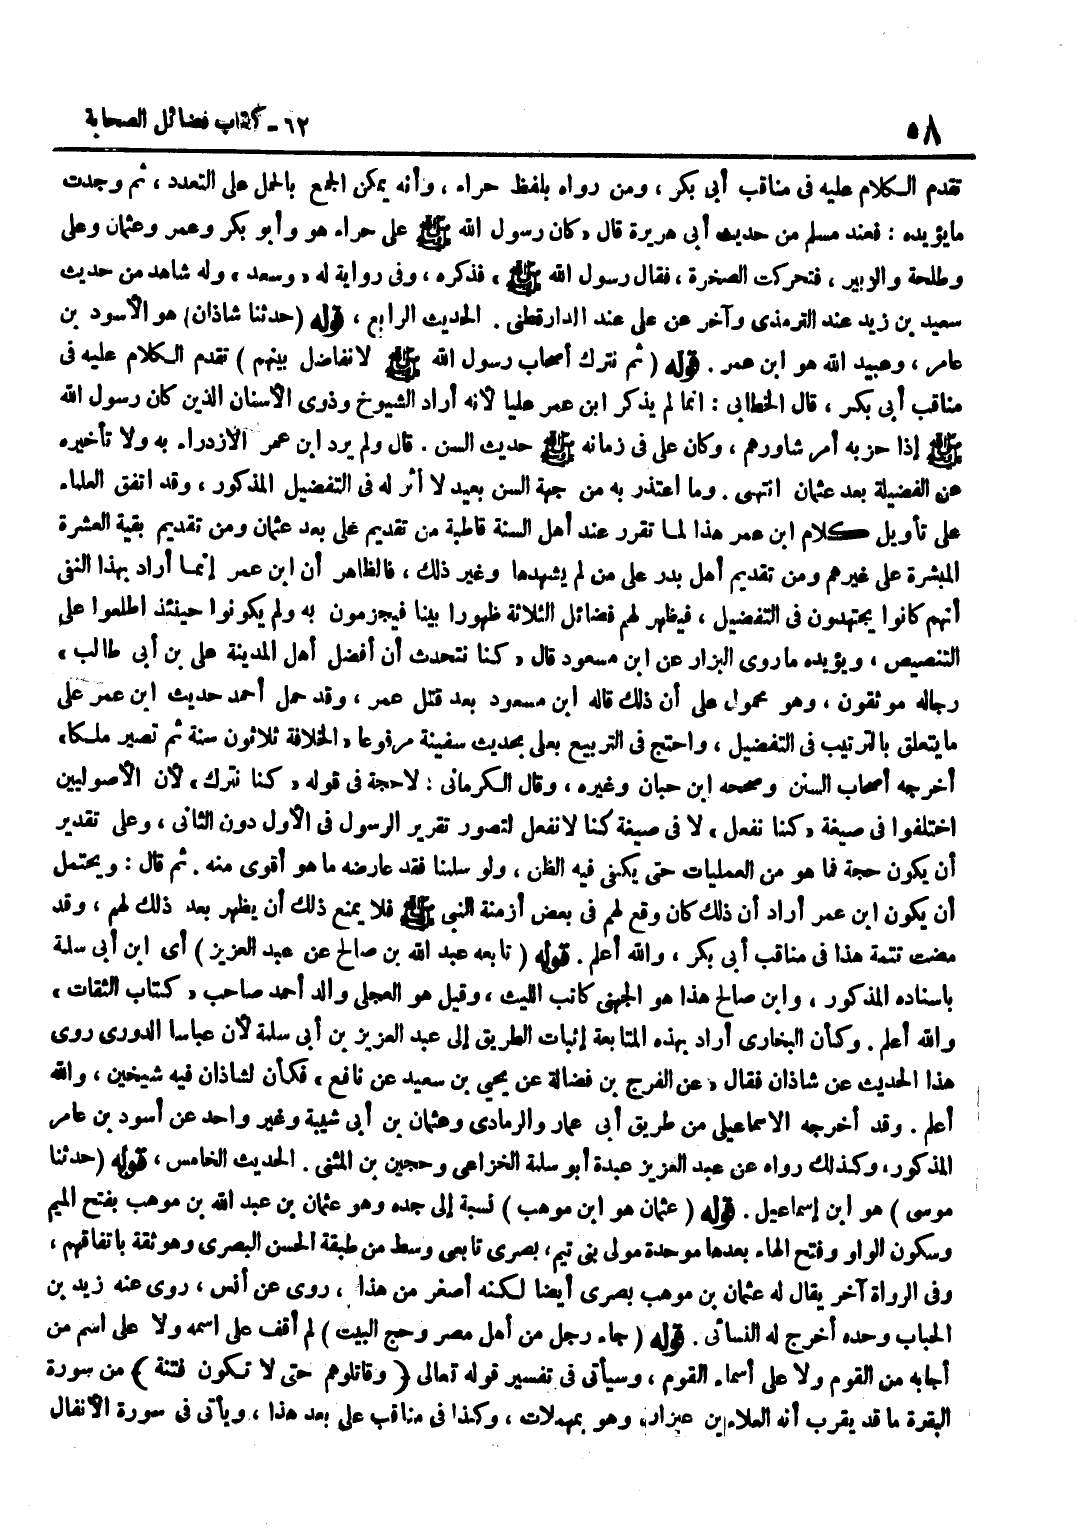 ٥٨
٦٢ - كتاب فضائل الصحابة
تقدم الكلام عليه فى مناقب أبى بكر ، ومن رواه بلفظ حراء ، وأنه يمكن الجمع بالحمل على التعدد ، ثم وجدت
مايؤيده : فعند مسلم من حديث أبى هريرة قال « كان رسول الله ﷺ على حراء هو وأبو بكر وعمر وعثمان وعلى
وطلحة والزبير ، فتحركت الصخرة ، فقال رسول الله ﷺ » فذكره ، وفى رواية له « وسعد » وله شاهد من حديث
سعيد بن زيد عند الترمذى وآخر عن على عند الدارقطنى . الحديث الرابع ، قوله ( حدثنا شاذان ) هو الأسود بن
عامر ، وعبيد الله هو ابن عمر . قوله ( ثم نترك أصحاب رسول الله ﷺ لانفاضل بينهم ) تقدم الكلام عليه فى
مناقب أبى بكر ، قال الخطابى : انما لم يذكر ابن عمر عليا لأنه أراد الشيوخ وذوى الأسنان الذين كان رسول الله
ﷺ إذا حزبه أمر شاورهم ، وكان على فى زمانه ﷺ حديث السن . قال ولم يرد ابن عمر الازدراء به ولا تأخيره
عن الفضيلة بعد عثمان انتهى . وما اعتذر به من جهة السن بعيد لا أثر له فى التفضيل المذكور ، وقد اتفق العلماء
على تأويل كلام ابن عمر هذا لما تقرر عند أهل السنة قاطبة من تقديم على بعد عثمان ومن تقديم بقية العشرة
المبشرة على غيرهم ومن تقديم أهل بدر على من لم يشهدها وغير ذلك ، فالظاهر أن ابن عمر إنما أراد بهذا النفى
أنهم كانوا يجتهدون فى التفضيل ، فيظهر لهم فضائل الثلاثة ظهورا بينا فيجزمون به ولم يكونوا حينئذ اطلعوا على
التنصيص ، ويؤيده ماروى البزار عن ابن مسعود قال « كنا نتحدث أن أفضل أهل المدينة على بن أبى طالب »
رجاله موثقون ، وهو محمول على أن ذلك قاله ابن مسعود بعد قتل عمر ، وقد حمل أحمد حديث ابن عمر على
مايتعلق بالترتيب فى التفضيل ، واحتج فى التربيع بعلى بحديث سفينة مرفوعا « الخلافة ثلاثون سنة ثم تصير ملكا »
أخرجه أصحاب السنن وصححه ابن حبان وغيره ، وقال الكرمانى : لاحجة فى قوله « كنا نترك » لأن الأصوليين
اختلفوا فى صيغة « كنا نفعل » لا فى صيغة كنا لانفعل لتصور تقرير الرسول فى الأول دون الثانى ، وعلى تقدير
أن يكون حجة فما هو من العمليات حتى يكفى فيه الظن ، ولو سلمنا فقد عارضه ما هو أقوى منه . ثم قال : ويحتمل
أن يكون ابن عمر أراد أن ذلك كان وقع لهم فى بعض أزمنة النبى ﷺ فلا يمنع ذلك أن يظهر بعد ذلك لهم ، وقد
مضت تتمة هذا فى مناقب أبى بكر ، والله أعلم . قوله ( تابعه عبد الله بن صالح عن عبد العزيز ) أى ابن أبى سلمة
باسناده المذكور ، وابن صالح هذا هو الجهنى كاتب الليث ، وقيل هو العجلى والد أحمد صاحب « كتاب الثقات »
والله أعلم . وكأن البخارى أراد بهذه المتابعة إثبات الطريق إلى عبد العزيز بن أبى سلمة لأن عباسا الدورى روى
هذا الحديث عن شاذان فقال « عن الفرج بن فضالة عن يحيى بن سعيد عن نافع » فكأن لشاذان فيه شيخين ، والله
أعلم . وقد أخرجه الاسماعيلى من طريق أبى عمار والرمادى وعثمان بن أبى شيبة وغير واحد عن أسود بن عامر
المذكور ، وكذلك رواه عن عبد العزيز عبدة أبو سلمة الخزاعى وحجين بن المثنى . الحديث الخامس ، قوله ( حدثنا
موسى ) هو ابن إسماعيل . قوله ( عثمان هو ابن موهب ) نسبة إلى جده وهو عثمان بن عبد الله بن موهب بفتح الميم
وسكون الواو وفتح الهاء بعدها موحدة مولى بنى تيم ، بصرى تابعى وسط من طبقة الحسن البصرى وهو ثقة باتفاقهم ،
وفى الرواة آخر يقال له عثمان بن موهب بصرى أيضا لكنه أصغر من هذا ، روى عن أنس ، روى عنه زيد بن
الحباب وحده أخرج له النسائى . قوله ( جاء رجل من أهل مصر وحج البيت ) لم أقف على اسمه ولا على اسم من
أجابه من القوم ولا على أسماء القوم ، وسيأتى فى تفسير قوله تعالى ﴿ وقاتلوهم حتى لا تكون فتنة ﴾ من سورة
البقرة ما قد يقرب أنه العلاء بن عيزار ، وهو بمهملات ، وكذا فى مناقب على بعد هذا ، ويأتى فى سورة الأنفال